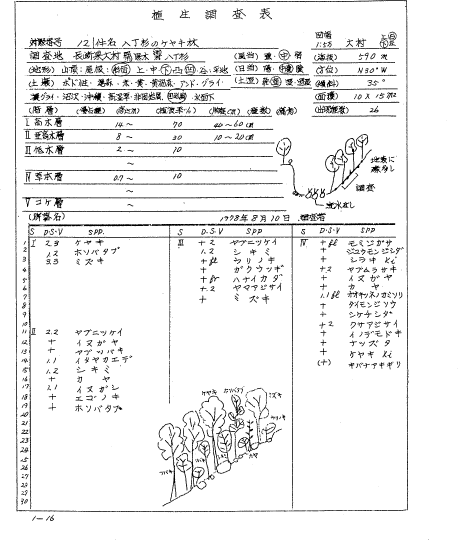 植生調査表
対照番号 121 件名 八丁杉のケヤキ林 図幅 1:5万 大村 上右下左
調査地 長崎県大村市 八丁杉 (風当) 強・中・弱 (海抜) 590 m
(地形) 山頂:尾根:斜面:上・中・下・凸・凹・谷:平地 (日当) 陽・中陰・陰 (方位) N30°W
(土壌) ポド性・褐森・赤・黄 アンド・グライ・ (土湿) 乾・適・湿・過湿 (傾斜) 35°
(面積) 10 × 15 m2
(階層) (優占種) (高さm) (植被率%) (胸径cm) (種数) (備考) (出現種数) 26
I 高木層 14~ 70 40~60cm
II 亜高木層 8~ 30 10~20cm
III 低木層 2~ 10
IV 草本層 0.7~ 10
V コケ層
地表に
調査
流水なし
(群落名) 1978年8月10日 調査者
S D・S・V SPP. S D・S・V SPP S D・S・V SPP
1 I 2.3 ケヤキ III +.2 ヤブニッケイ IV +fl モミジガサ
2 1.2 ホソバタブ 1.2 シキミ + ジュウモンジシダ
3 3.3 ミズキ +fl ウリノキ + シラキ Ki
4 + ガクウツギ +.2 ヤブムラサキ
5 +fr ハナイカダ + イヌガヤ
6 +.2 ヤマアジサイ + カヤ
7 + ミズキ 1.1fl オオキツネノカミソリ
8 + ダイモンジソウ
9 + シケチシダ
10 +.2 クサアジサイ
11 II 2.2 ヤブニッケイ + イノデモドキ
12 + イヌガヤ + ナツヅタ
13 + ヤブツバキ + ケヤキ Ki
14 1.1 イタヤカエデ (+) キバナアキギリ
15 1.2 シキミ
16 + カヤ
17 2.1 イヌガシ
18 + エゴノキ
19 + ホソバタブ
20
21
22
23
24
25
26
27
28
29
30
ケヤキ ホソバタブ ミズキ
1-16